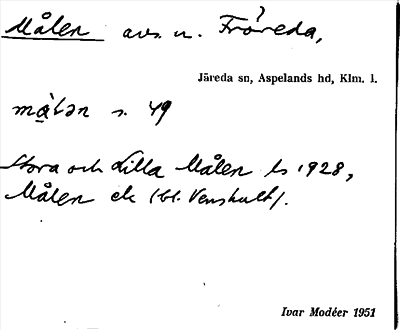 Målen avs. u. Fröreda,
Järeda sn, Aspelands hd, Klm. l.
s. 49
Stora och Lilla Målen ls 1928,
Målen ek (bl. Venshult).
Ivar Modéer 1951